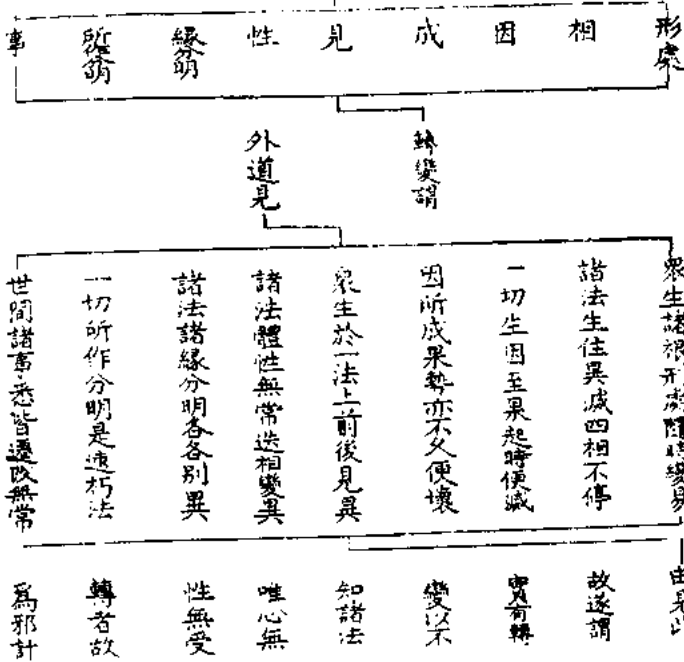 形處
相
因
成
見
性
緣分明
所作分明
事
轉變謂
外道見
眾生諸根形處隨時變易
諸法生住異滅四相不停
一切生因至果起時便滅
因所成果勢亦不久便壞
眾生於一法上前後見異
諸法體性無常迭相變異
諸法諸緣分明各各別異
一切所作分明是速朽法
世間諸事悉皆遷改無常
由是以
故遂謂
實有轉
變以不
知諸法
唯心無
性無受
轉者故
為邪計